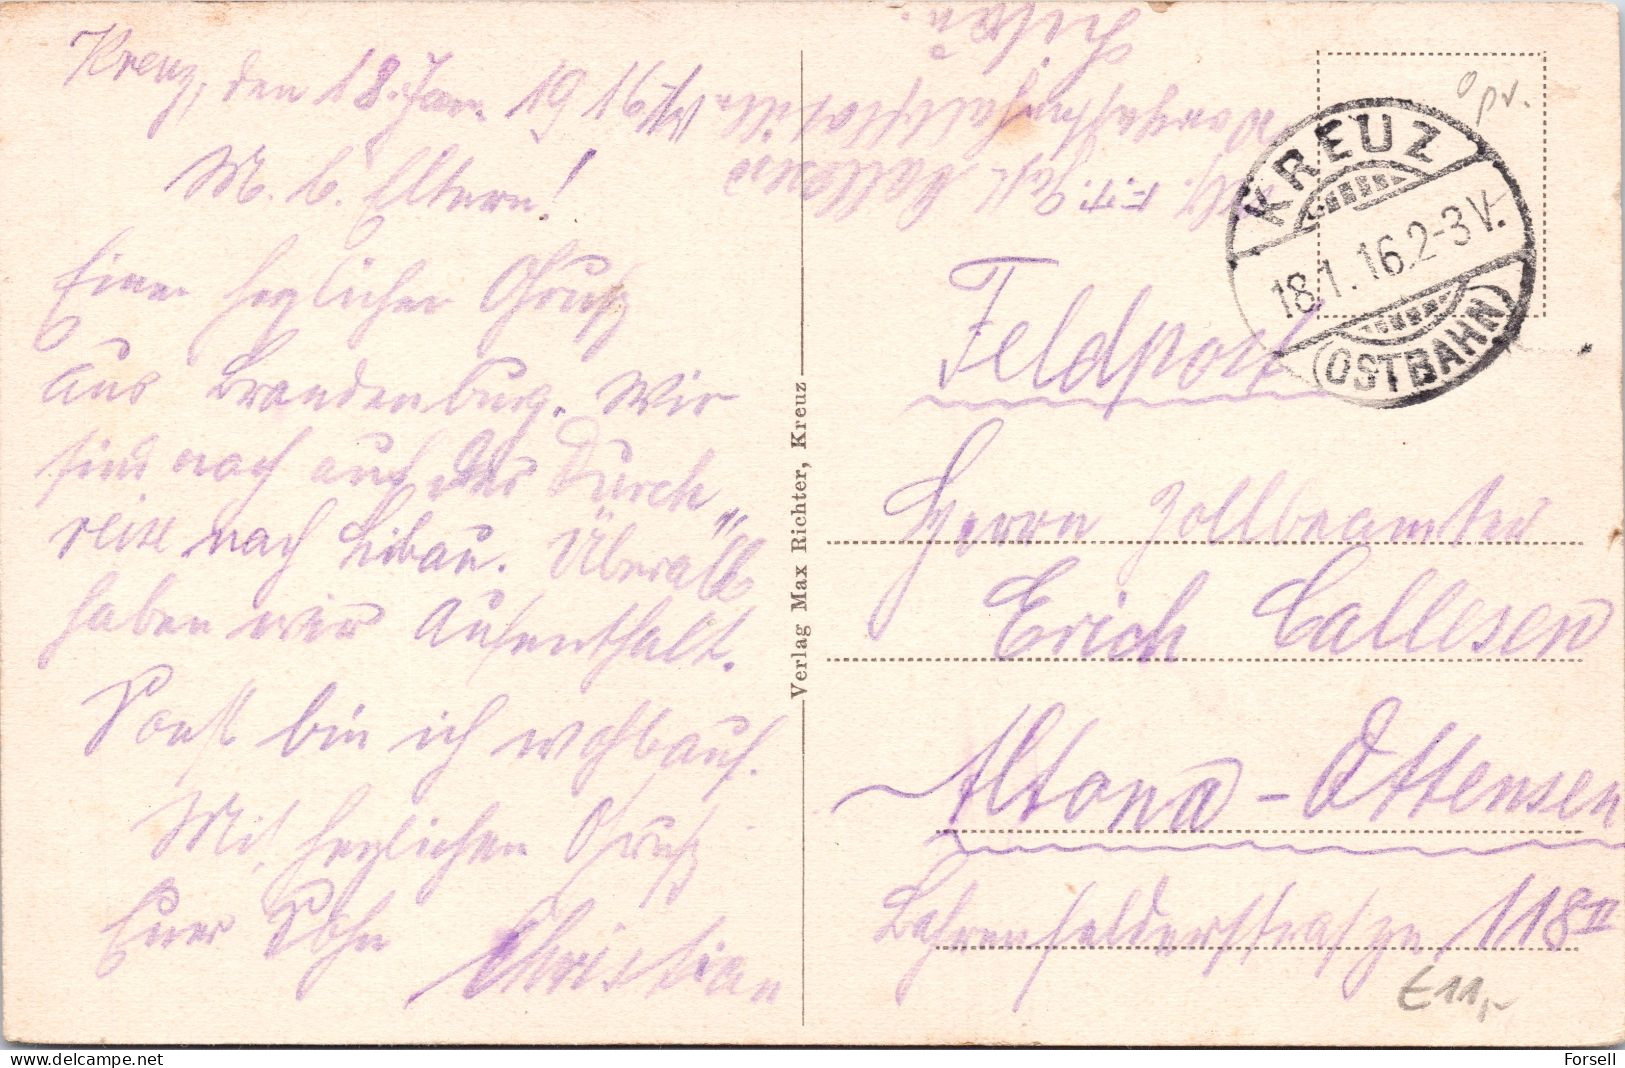 Kreuz, den 18. Jan. 1916
M. l. Eltern!
Einen herzlichen Gruß
aus Brandenburg. Wir
sind noch auf der Durch„
reise nach Libau. Überall
haben wir Aufenthalt.
Sonst bin ich wohlauf.
Mit herzlichen Gruß
Euer Sohn Christian
Verlag Max Richter, Kreuz
Abs. F.T. Gast Callesen
Vorpostenhalbflottille
Libau.
KREUZ
18.1.16.2-3V.
(OSTBAHN)
Feldpost
Herrn Zollbeamten
Erich Callesen
Altona - Ottensen
Bahrenfelderstraße 118 II
€11,-
Forsell